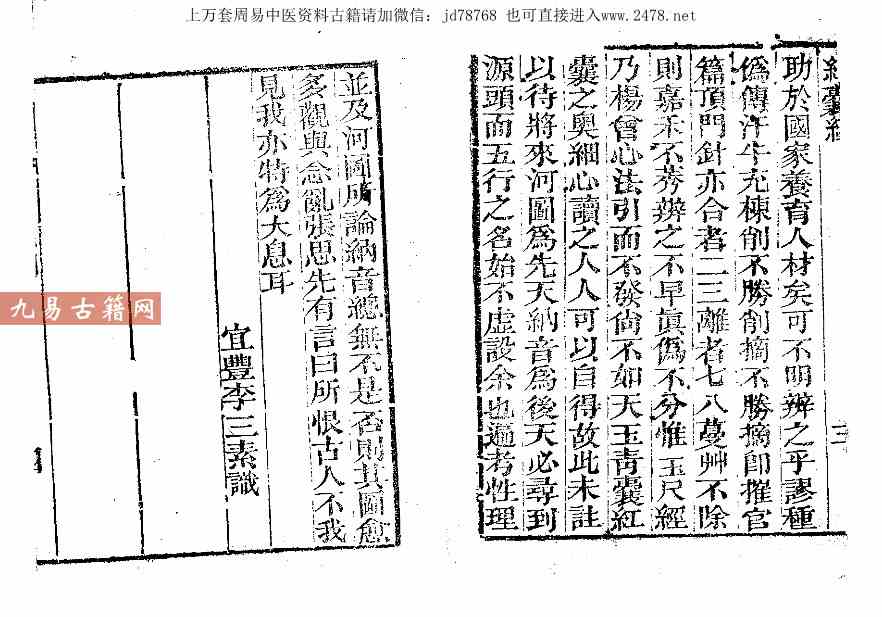 上万套周易中医资料古籍请加微信：jd78768 也可直接进入www.2478.net
紅囊經
助於國家養育人材矣可不明辨之乎謬種
僞傳汗牛充棟削不勝削摘不勝摘卽摧官
篇頂門針亦合者二三離者七八蔓艸不除
則嘉禾不莠辨之不早眞僞不分惟玉尺經
乃楊曾心法引而不發尙不如天玉靑囊紅
囊之奧細心讀之人人可以自得故此未註
以待將來河圖爲先天納音爲後天必尋到
源頭而五行之名始不虛設余也遍考性理
並及河圖所論納音總無不是否則其圖愈
多觀與念亂張思先有言曰所恨古人不我
見我亦特爲大息耳
宜豐李三素識
九易古籍网